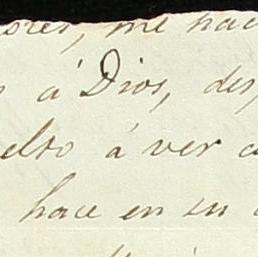 me hac
á Dios, des
elto á ver a
hace en su